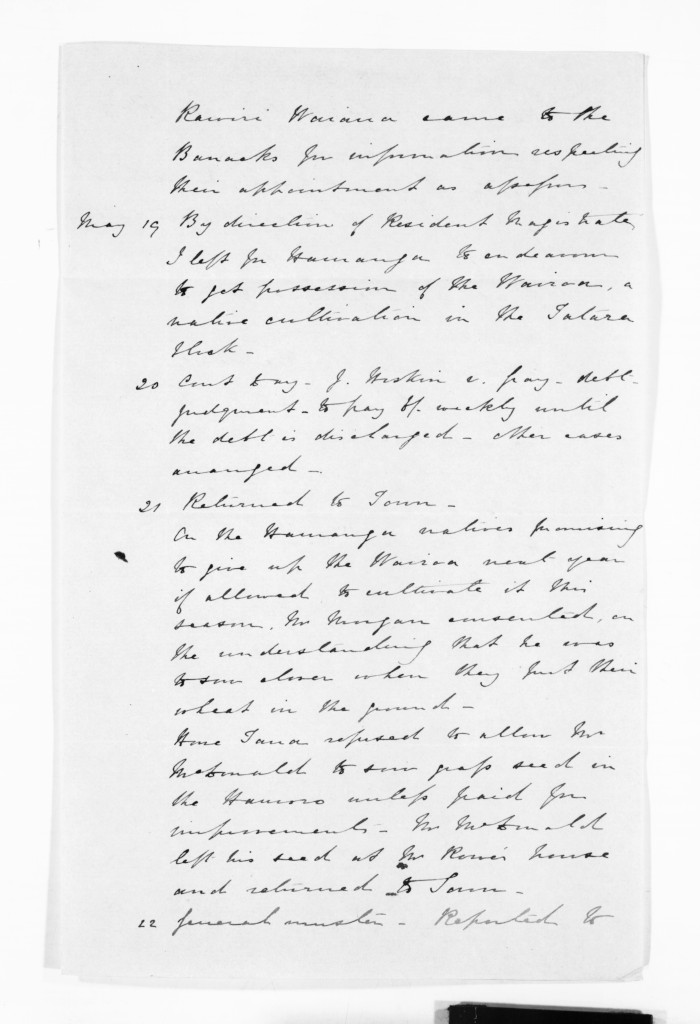 Rawiri Waiana came to the
Barracks for information respecting
their appointment as assessors -
May 19 By direction of Resident Magistrate,
I left for Hamanga to endeavour
to get possession of the Wairoa, a
native cultivation in the Tatara
Block -
20 Court day - J. Hoskin v. Gray - debt -
judgment - to pay weekly until
the debt is discharged - other cases
arranged -
21 Returned to Town -
On the Hamanga natives promising
to give up the Wairoa next year
if allowed to cultivate it this
season, Mr Morgan consented, on
the understanding that he was
to sow clover when they put their
wheat in the ground -
Hone Tana refused to allow Mr
McDonald to sow grass seed in
the unless paid for
improvements - Mr McDonald
left his seed at Mr Rowe's house
and returned to Town -
22 General muster - Reported to